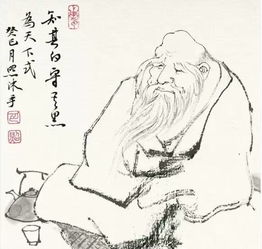 知其白守其黑
為天下式
癸巳月照沐手